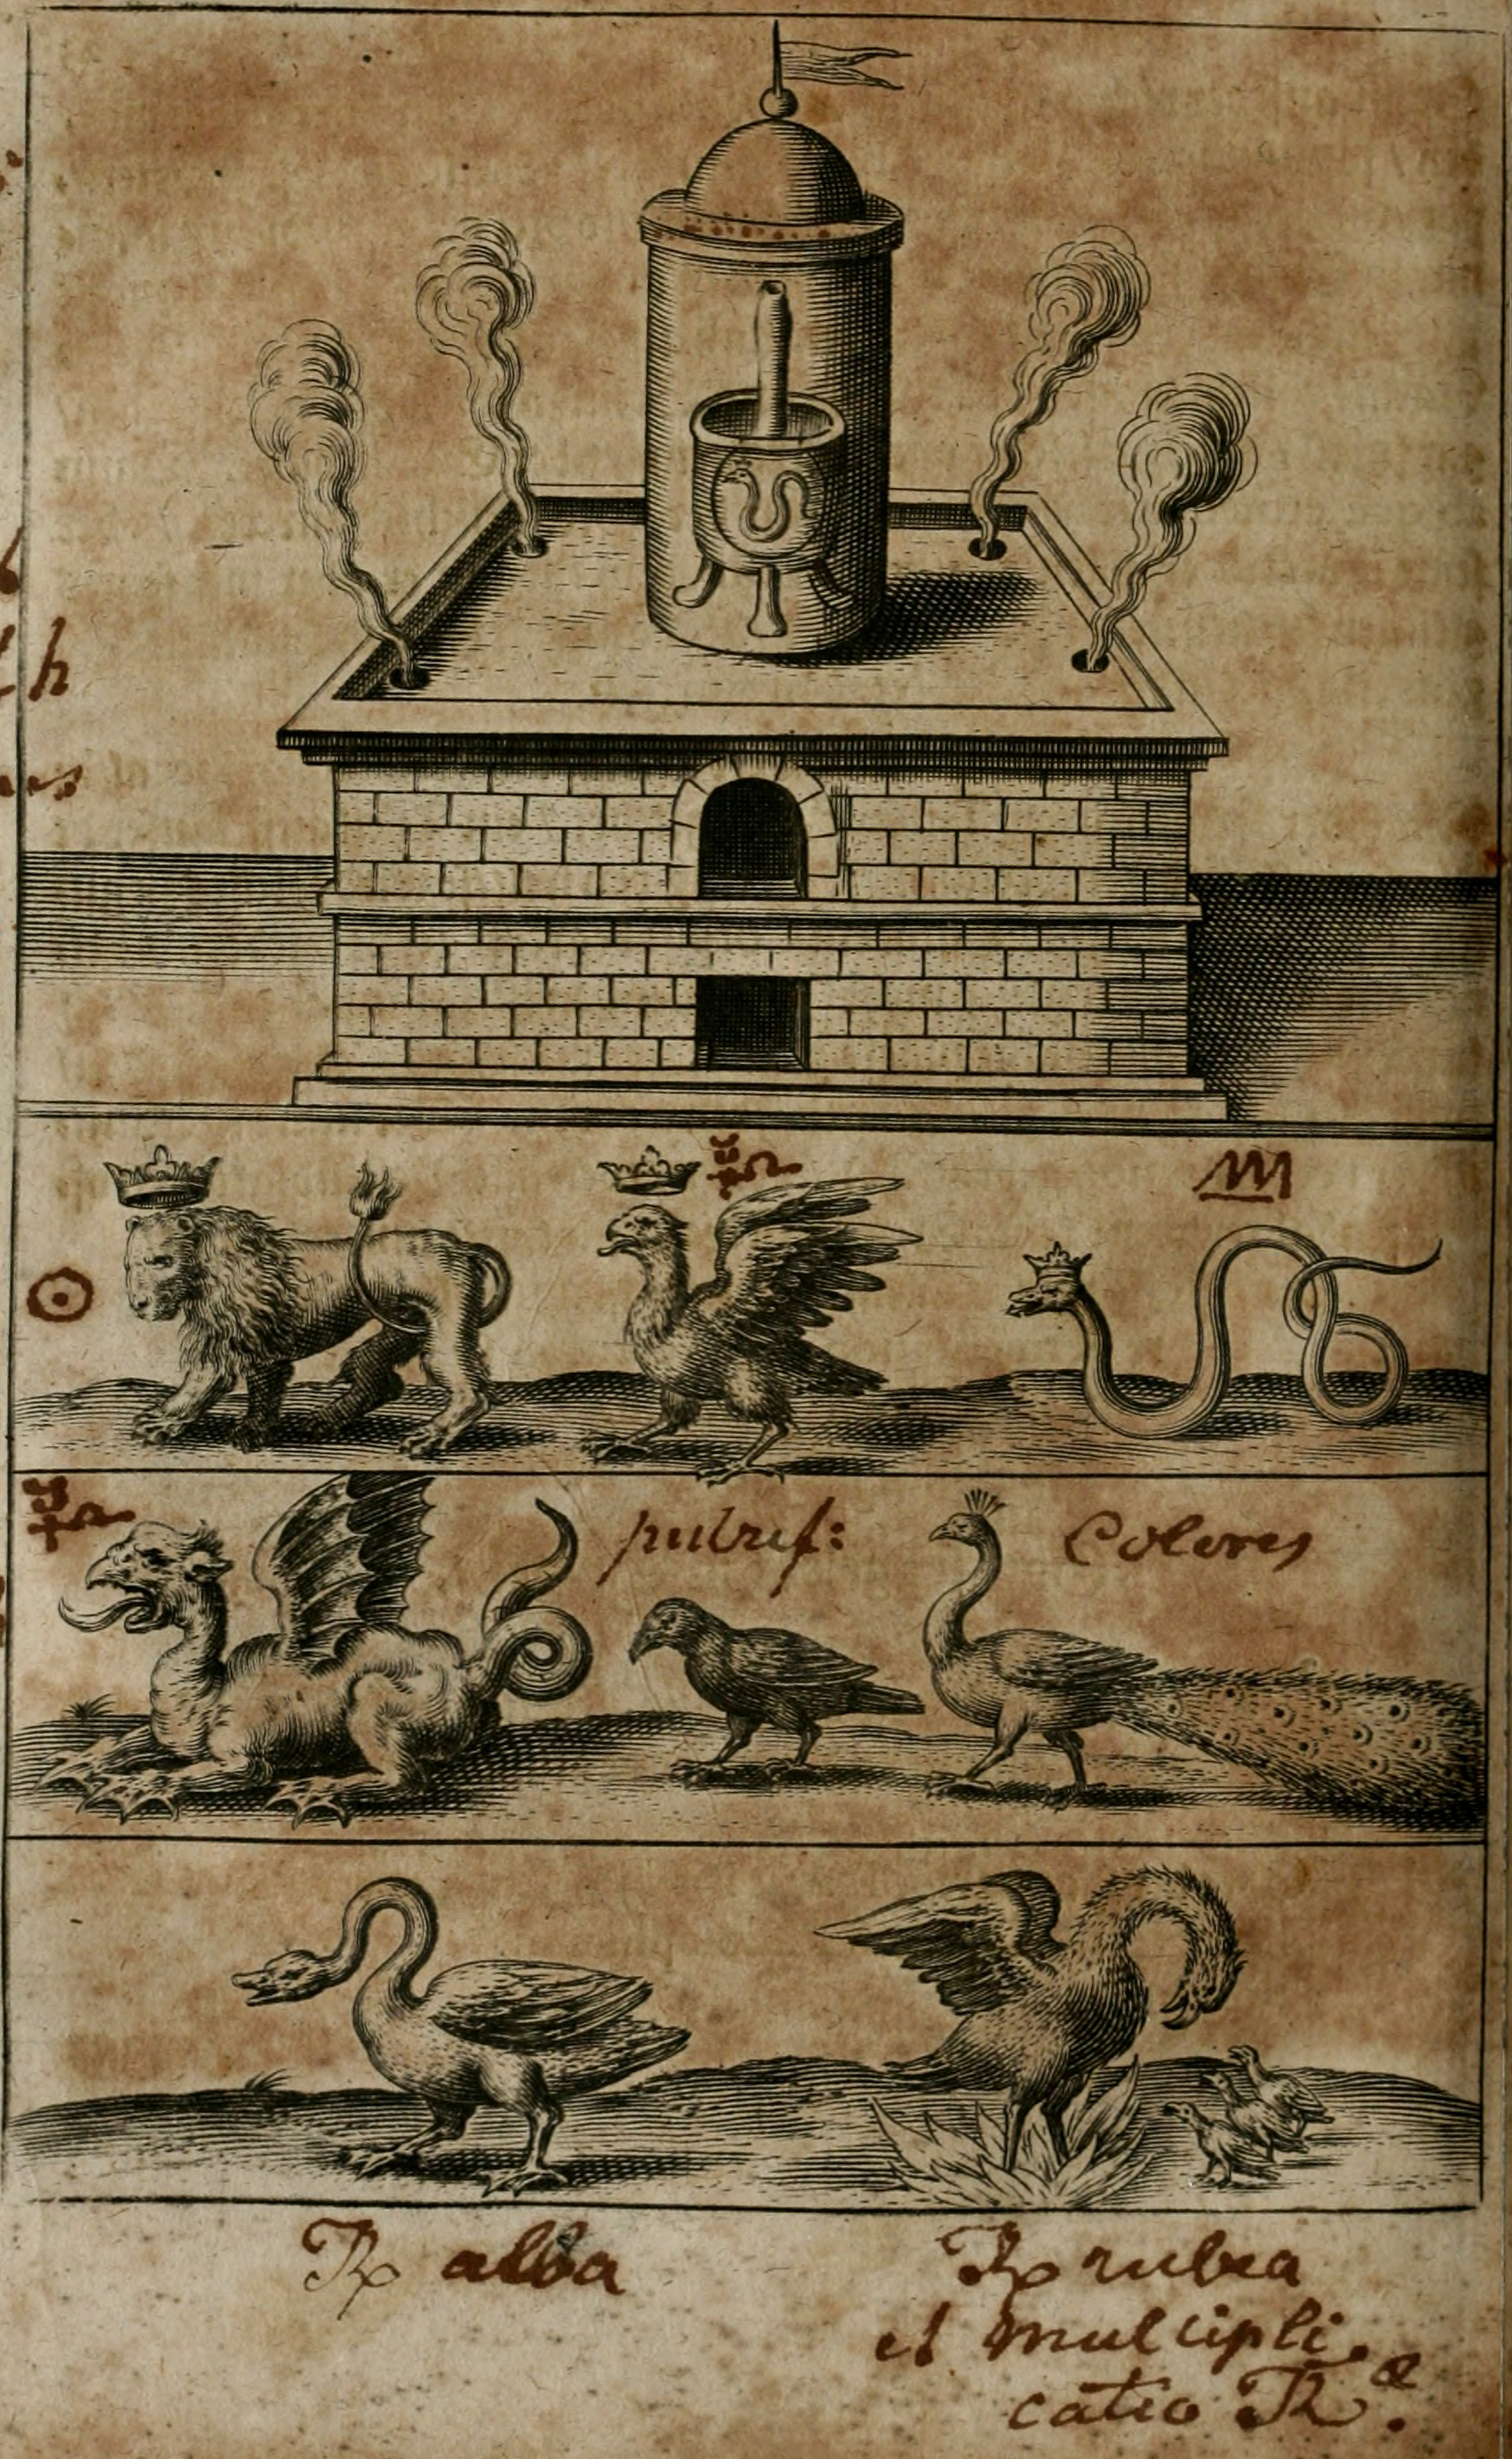 th
☉
♏
putref:
Colores
℞ alba
℞ rubea
et multipli
catio ℞